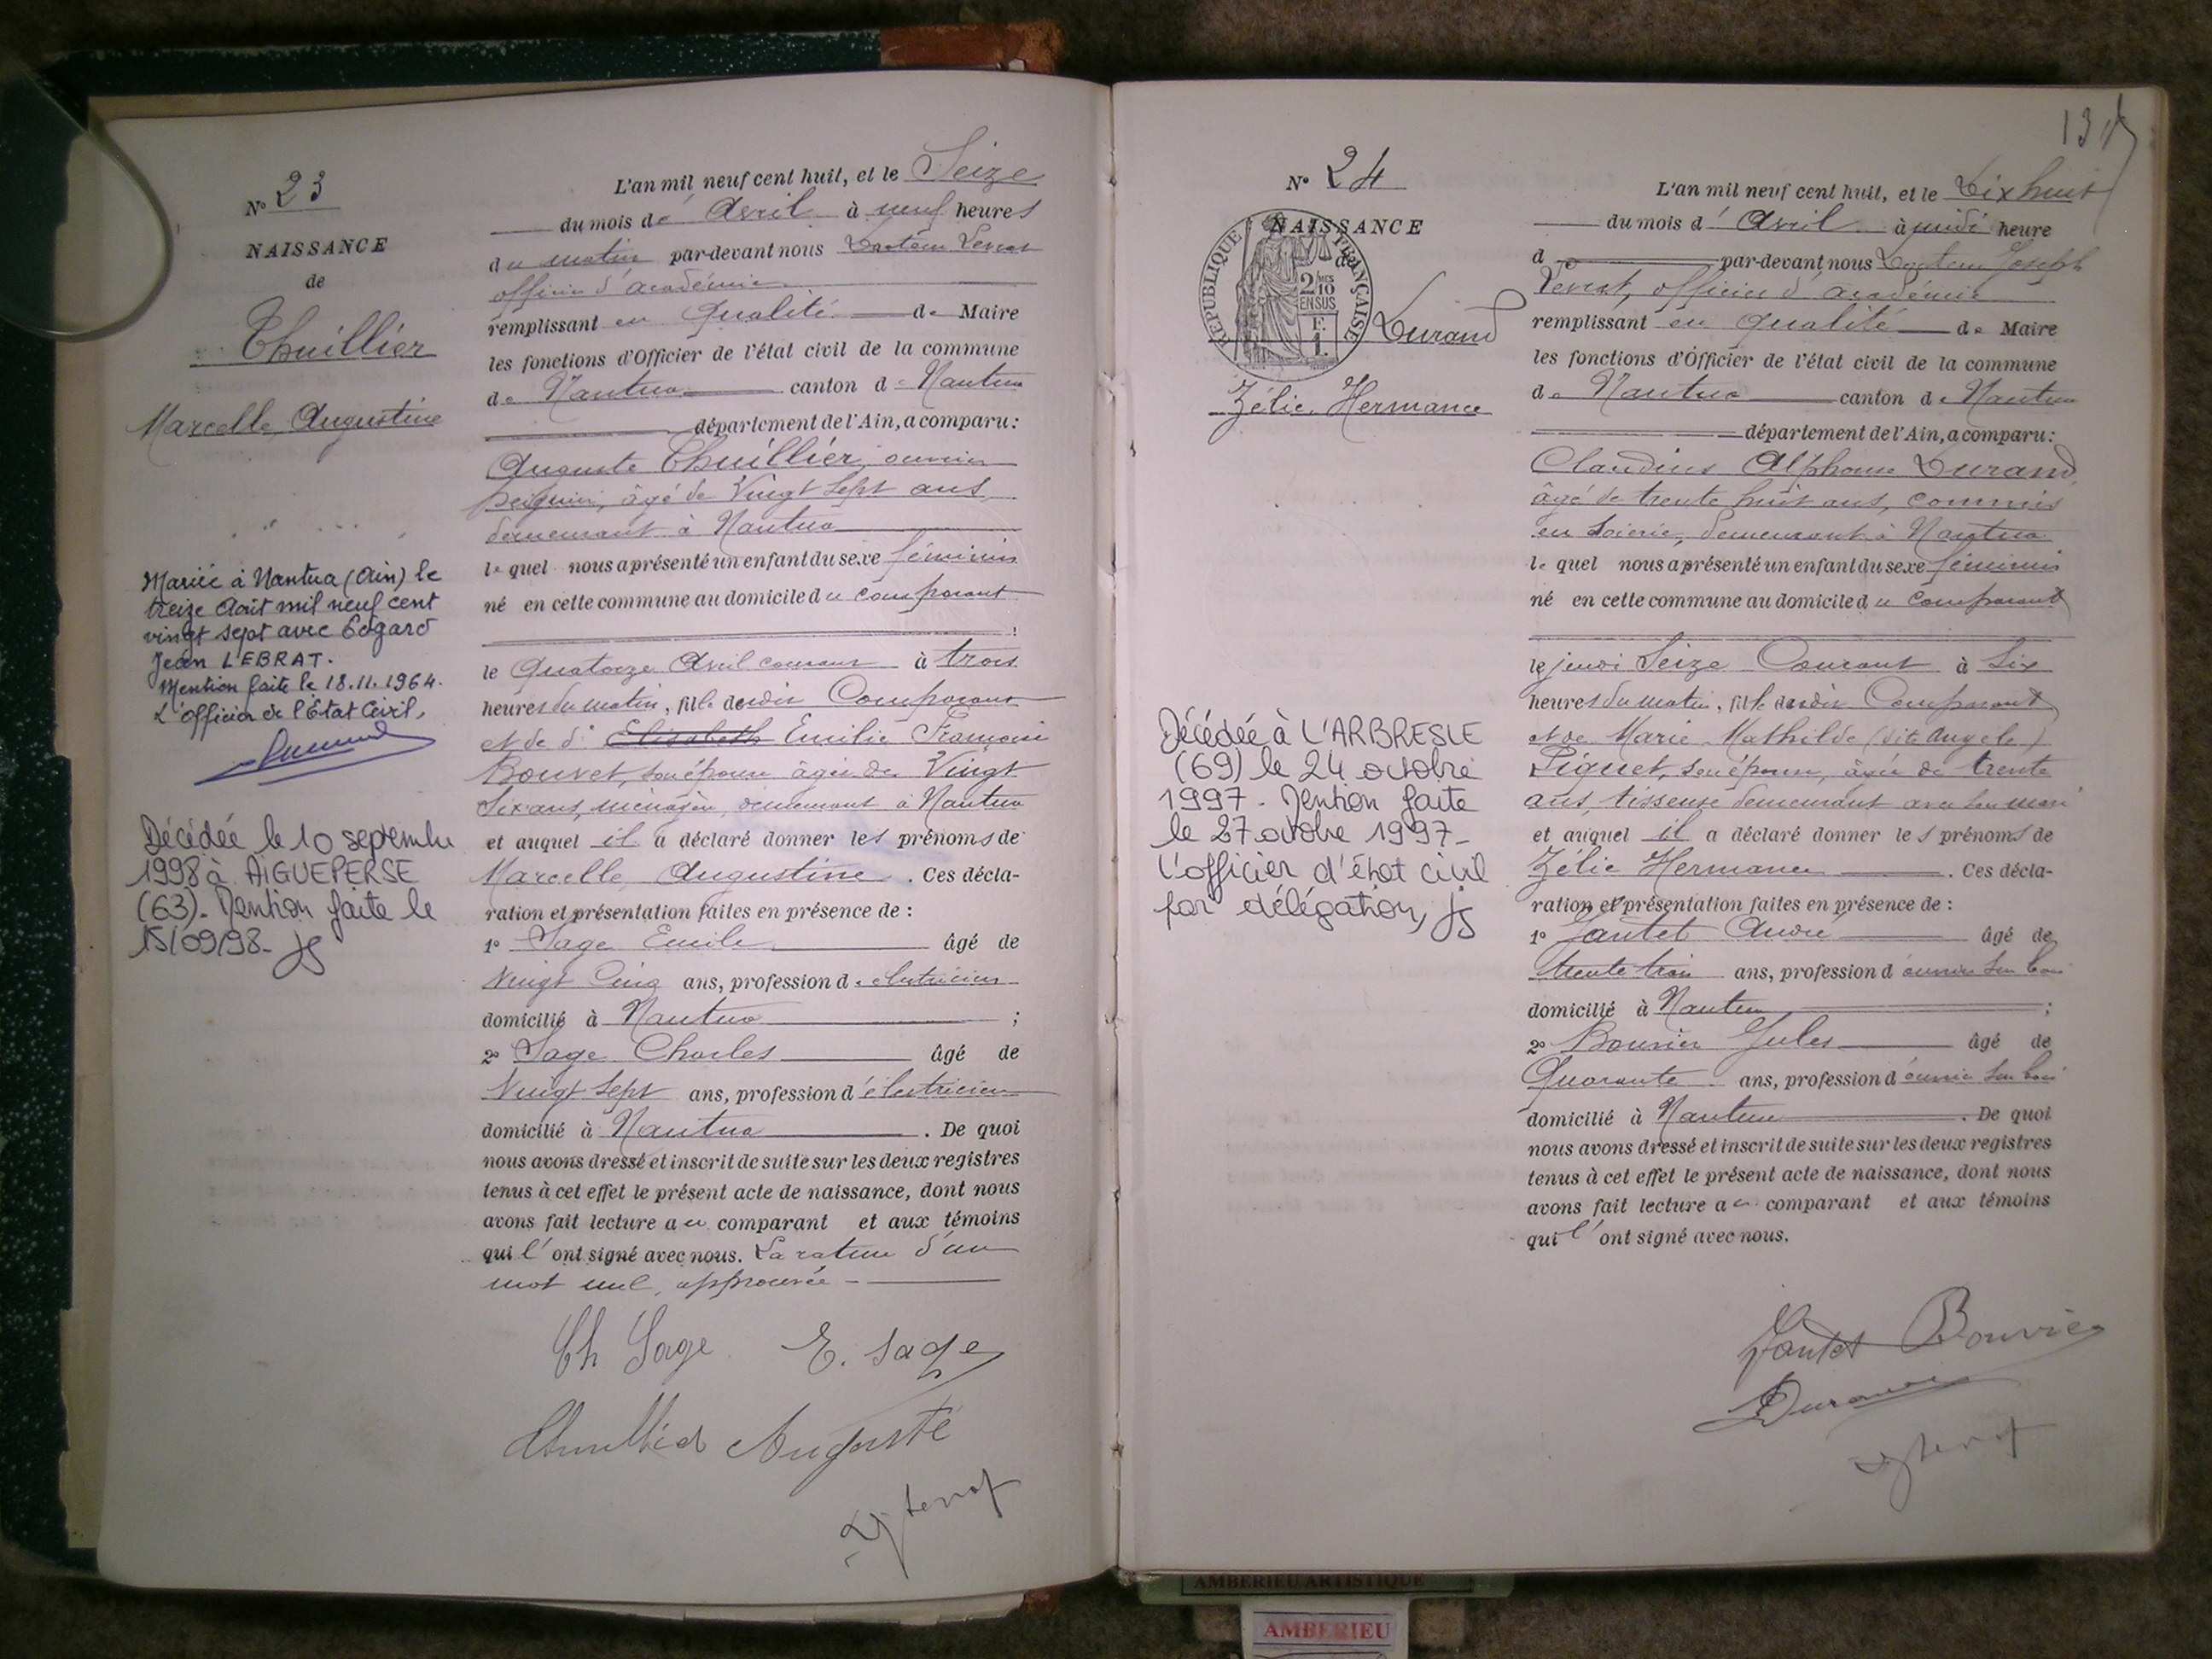 N° 23
NAISSANCE
de
Thuillier
Marcelle Augustine
Mariée à Nantua (Ain) le
treize Août mil neuf cent
vingt sept avec Edgard
Jean LEBRAT.
Mention faite le 18.11.1964.
L'officier de l'Etat Civil,
Décédée le 10 septembre
1998 à AIGUEPERSE
(63). Mention faite le
15/09/98.
L'an mil neuf cent huit, et le Seize
du mois d' Avril à neuf heures
du matin par-devant nous
officier d'académie
remplissant en qualité de Maire
les fonctions d'Officier de l'état civil de la commune
de Nantua canton de Nantua
département de l'Ain, a comparu:
Auguste Thuillier, ouvrier
âgé de Vingt sept ans
demeurant à Nantua
lequel nous a présenté un enfant du sexe féminin
né en cette commune au domicile du comparant
le Quatorze Avril courant à trois
heures du matin, fille dudit Comparant
et de d° Elisabeth Emilie Françoise
Bouvet, son épouse âgée de Vingt
six ans, ménagère, demeurant à Nantua
et auquel il a déclaré donner les prénoms de
Marcelle Augustine. Ces décla-
ration et présentation faites en présence de :
1° Sage Emile âgé de
Vingt Cinq ans, profession d'électricien
domicilié à Nantua ;
2° Sage Charles âgé de
Vingt sept ans, profession d'électricien
domicilié à Nantua . De quoi
nous avons dressé et inscrit de suite sur les deux registres
tenus à cet effet le présent acte de naissance, dont nous
avons fait lecture au comparant et aux témoins
qui l'ont signé avec nous. La rature d'un
mot nul, approuvée -
Ch Sage E. Sage
Thuillier Auguste
N° 24
NAISSANCE
de
REPUBLIQUE FRANÇAISE
2/10 EN SUS
Durand
Zélie Hermance
Décédée à L'ARBRESLE
(69) le 24 octobre
1997. Mention faite
le 27 octobre 1997-
L'officier d'état civil
par délégation,
L'an mil neuf cent huit, et le Dix huit
du mois d' Avril à midi heure
d par-devant nous Joseph
officier d'académie
remplissant en qualité de Maire
les fonctions d'Officier de l'état civil de la commune
de Nantua canton de Nantua
département de l'Ain, a comparu:
Claudius Alphonse Durand,
âgé de trente huit ans, commis
en soierie, demeurant à Nantua
lequel nous a présenté un enfant du sexe féminin
né en cette commune au domicile du comparant
le jeudi Seize Courant à Six
heures du matin, fille dudit Comparant
et de Marie Mathilde (dite Angèle)
Piquet, son épouse, âgée de trente
ans, tisseuse demeurant avec son mari
et auquel il a déclaré donner les prénoms de
Zélie Hermance . Ces décla-
ration et présentation faites en présence de :
1° Jantet André âgé de
trente trois ans, profession d'ouvrier sur bois
domicilié à Nantua ;
2° Bouvier Jules âgé de
Quarante ans, profession d'ouvrier sur bois
domicilié à Nantua . De quoi
nous avons dressé et inscrit de suite sur les deux registres
tenus à cet effet le présent acte de naissance, dont nous
avons fait lecture au comparant et aux témoins
qui l'ont signé avec nous.
Jantet Bouvier
Durand
AMBERIEU ARTISTIQUE
AMBERIEU